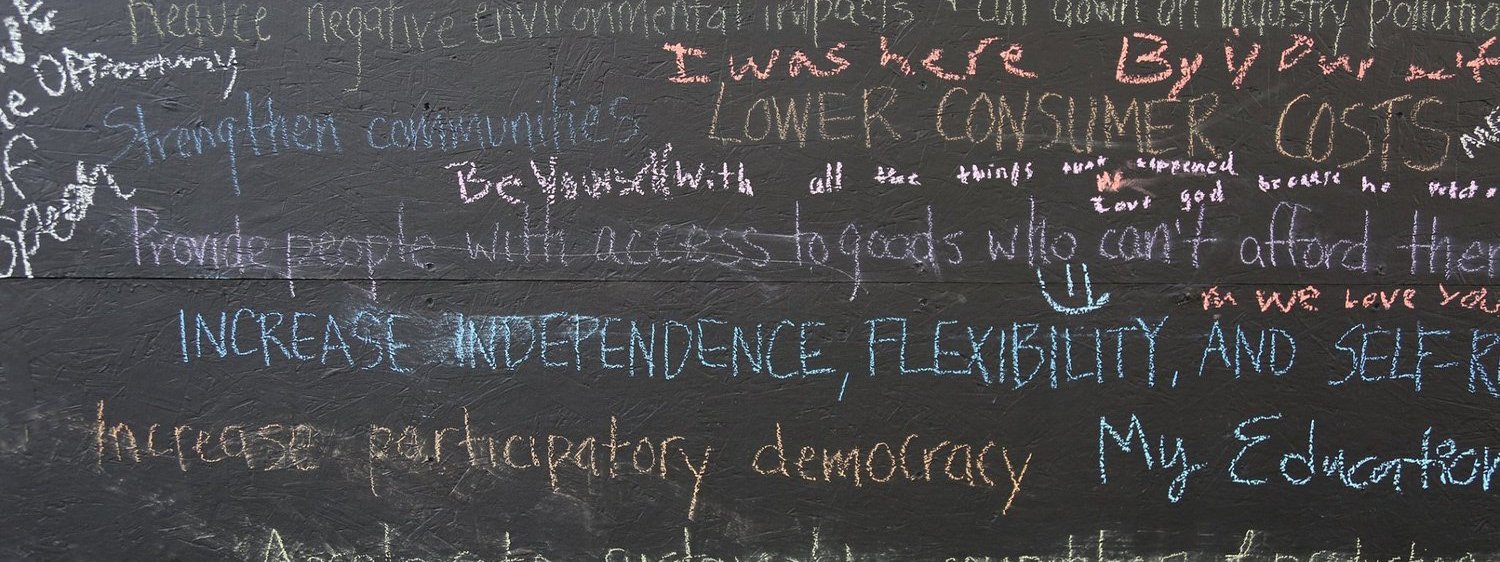 Reduce negative environmental impacts
cut down on industry
Opportuniy
I was here By your
Strengthen communities
LOWER CONSUMER COSTS
Be Yourself With all the things
Love god because he
OF
Provide people with access to goods who can't afford them
WE Love You
INCREASE INDEPENDENCE, FLEXIBILITY, AND SELF-R
Increase participatory democracy
My Education